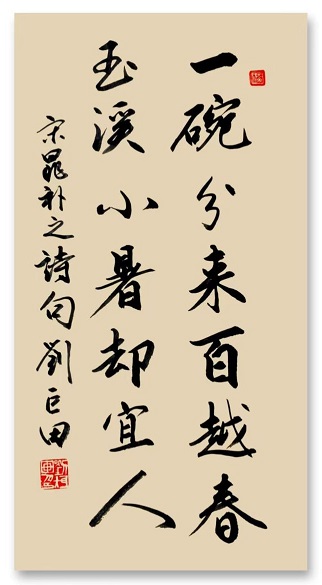 一碗分来百越春
玉溪小暑却宜人
宋晁补之詩句劉巨田